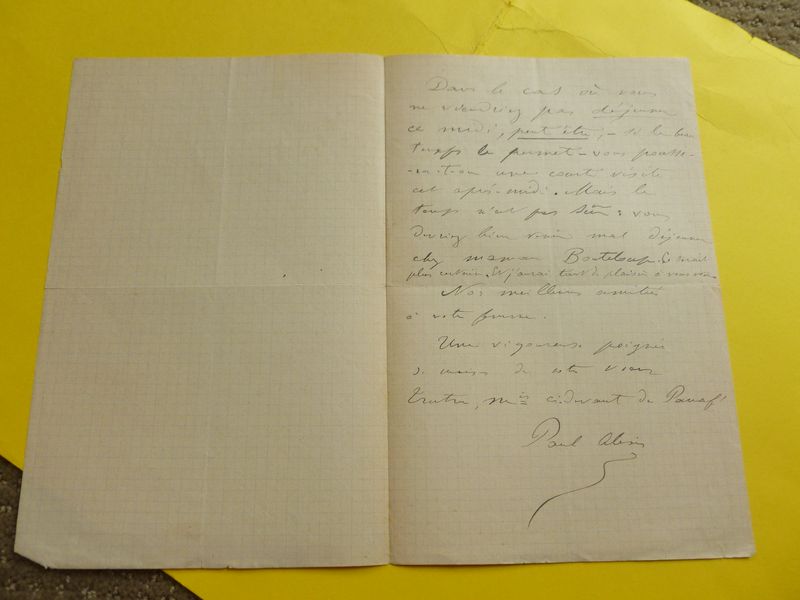 Dans le cas où vous
ne viendriez pas déjeuner
ce midi, peut être, – si le beau
temps le permet – vous pousse-
-ra-t-on une courte visite
cet après-midi. Mais le
temps n'est pas sûr : vous
devriez bien venir mal déjeuner
chez maman Bouteloup. Ce serait
plus certain. Et j'aurai tant de plaisir à vous voir.
Nos meilleures amitiés
à votre femme.
Une vigoureuse poignée
de mains de votre vieux
Trutru, ci-devant de
Paul Alexis